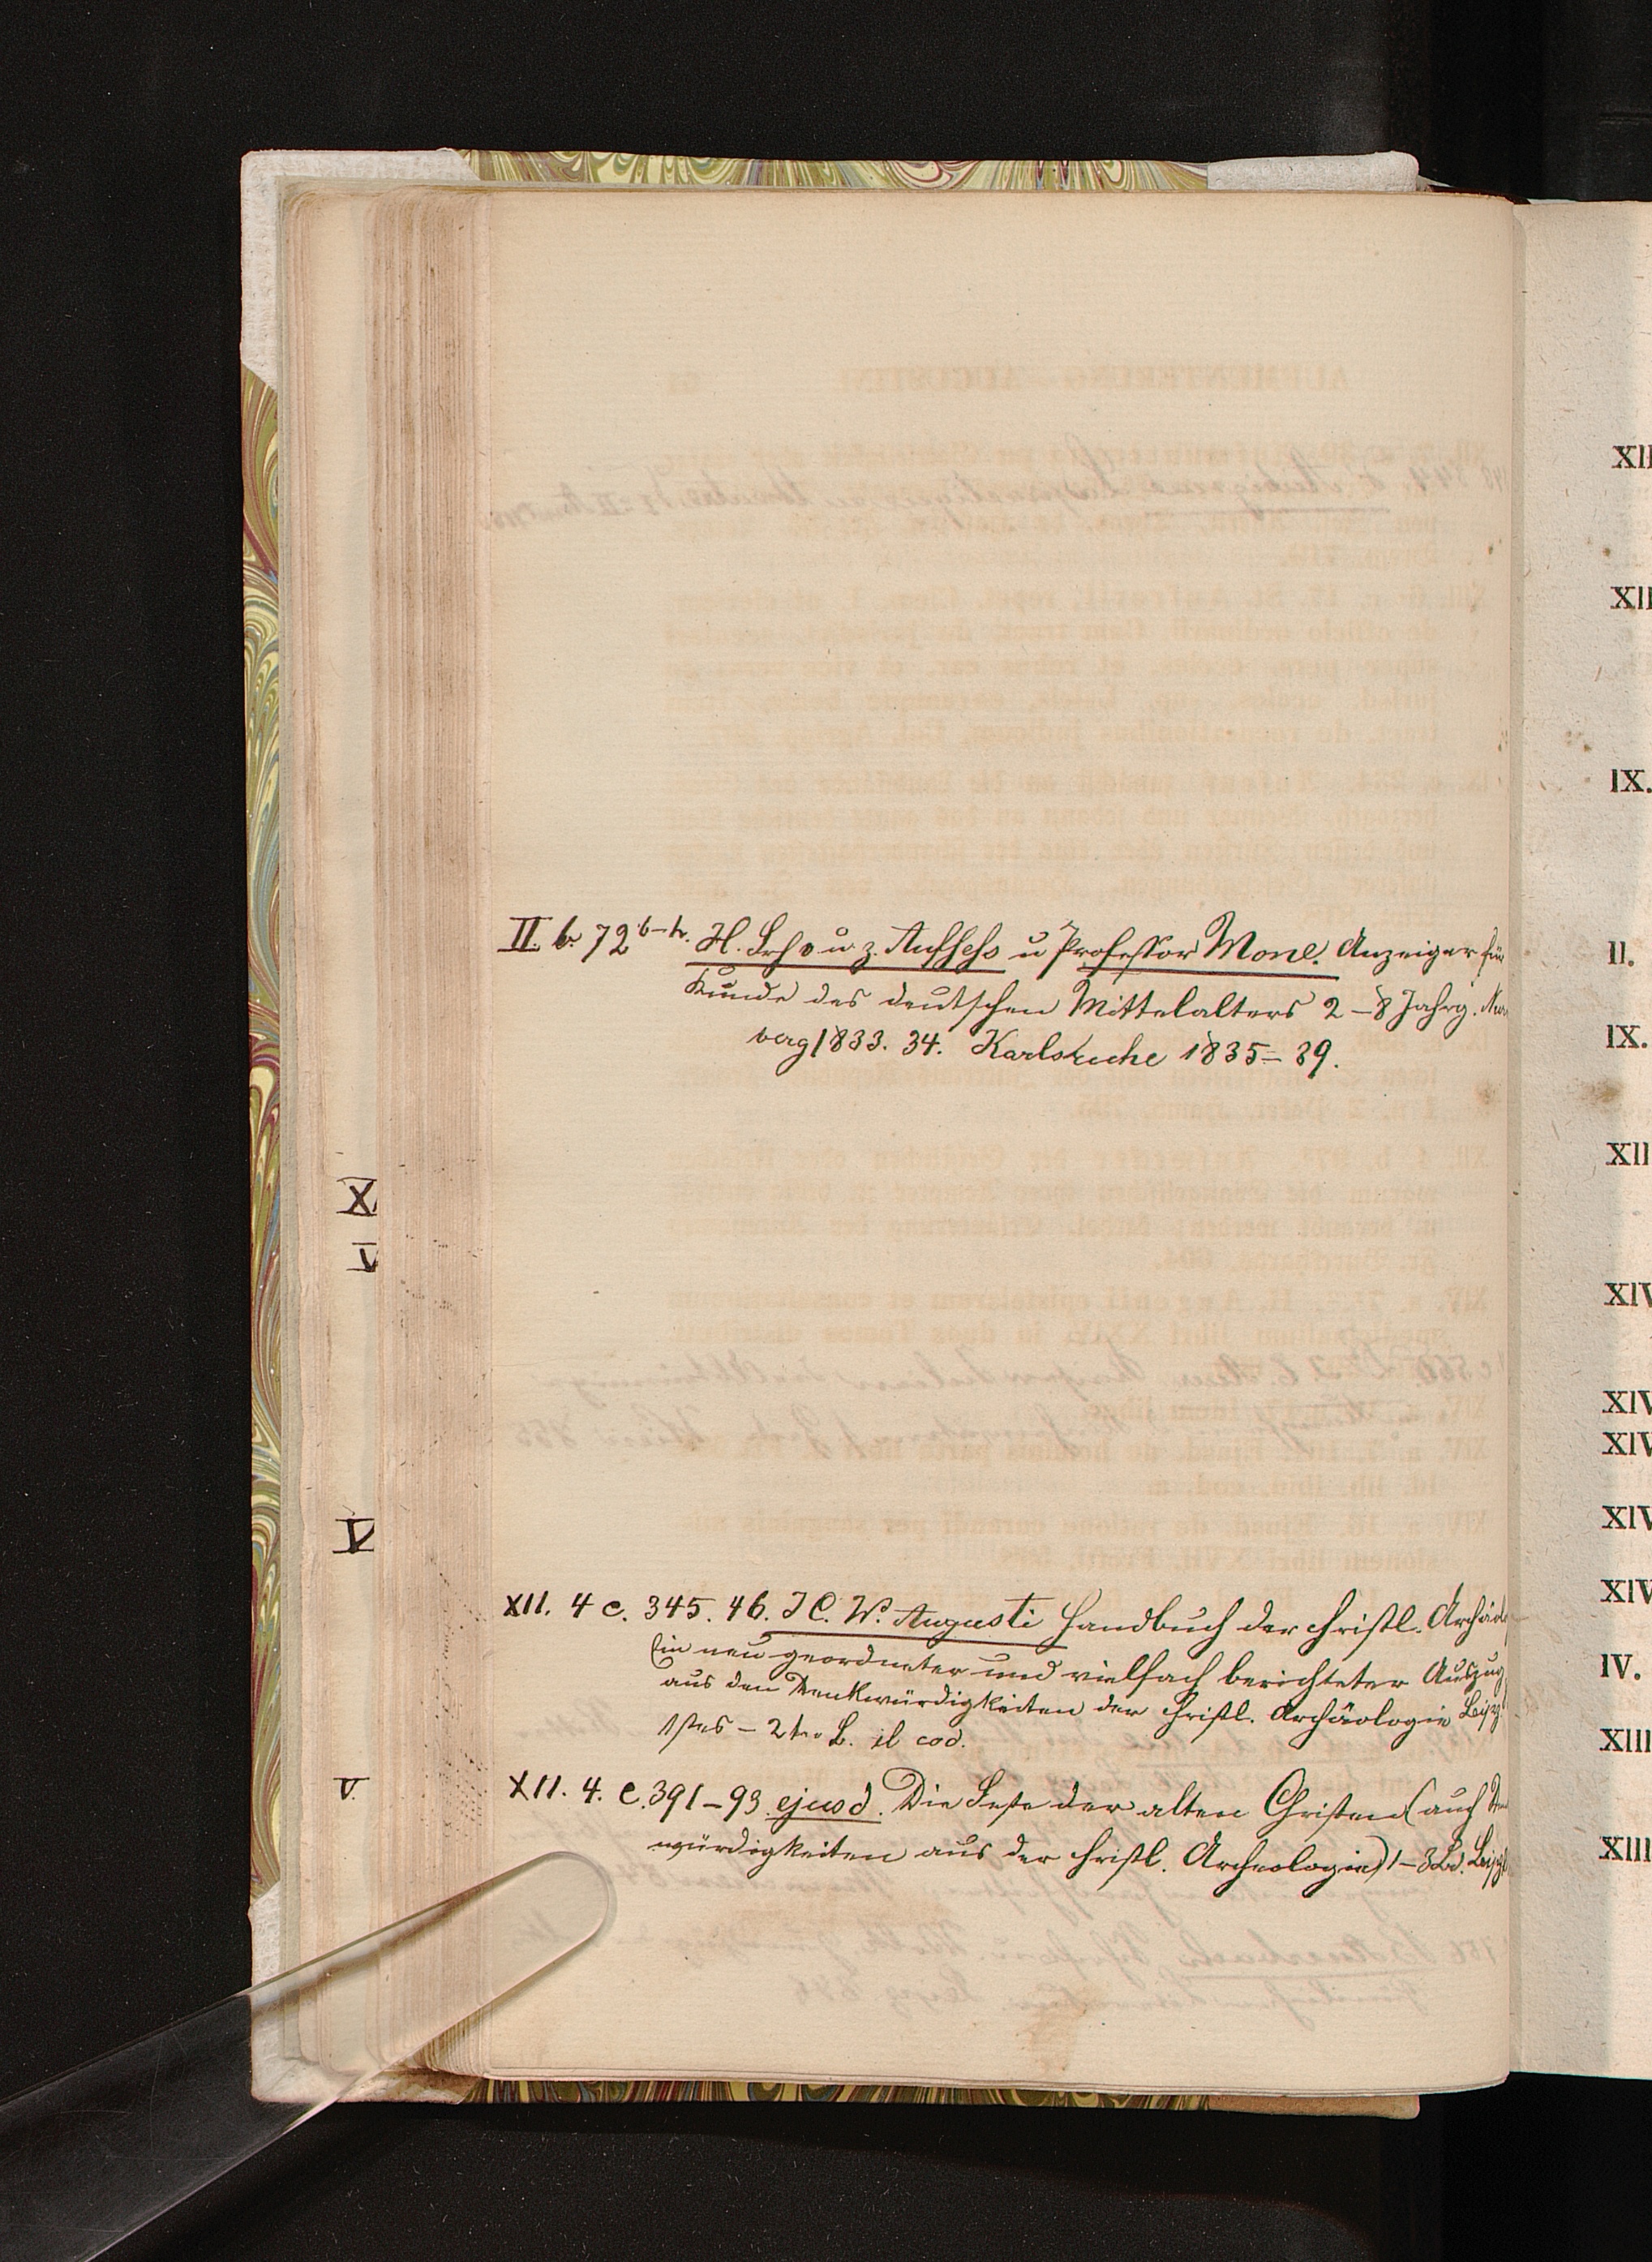 II. b. 72 b-h. H. Frh v u. z. Aufsess u Professor Mone. Anzeiger für
Kunde des deutschen Mittelalters 2-8 Jahrg. Nürn
berg 1833. 34. Karlsruhe 1835-39.
X
V
V
XII. 4 c. 345. 46. J C. W. Augusti Handbuch der christl. Archäolo
Ein neu geordneter und vielfach berichteter Auszug
aus den Denkwürdigkeiten der christl. Archäologie Leipz
1stes - 2tes B.
V
XII. 4. c. 391-93 ejusd. Die Feste der alten Christen (auch Denk
würdigkeiten aus der christl. Archeologie) 1-3 Bd. Leipz
XII
XII
IX.
II.
IX.
XII
XIV
XIV
XIV
XIV
XIV
IV.
XIII
XIII